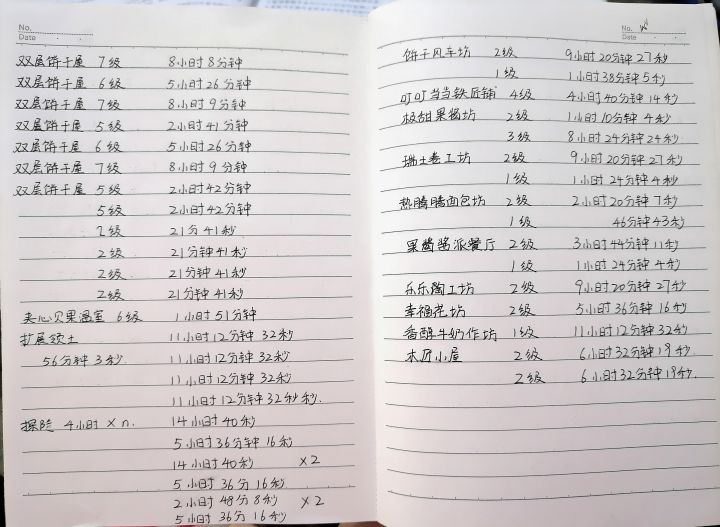 No.
Date
双层饼干屋 7级 8小时8分钟
双层饼干屋 6级 5小时26分钟
双层饼干屋 7级 8小时9分钟
双层饼干屋 5级 2小时41分钟
双层饼干屋 6级 5小时26分钟
双层饼干屋 7级 8小时9分钟
双层饼干屋 5级 2小时42分钟
5级 2小时42分钟
2级 21分41秒
2级 21分钟41秒
2级 21分钟41秒
2级 21分钟41秒
夹心贝果温室 6级 1小时51分钟
扩展领土 11小时12分钟32秒
56分钟3秒 11小时12分钟32秒
11小时12分钟32秒
11小时12分钟32秒秒.
探险 4小时×n. 14小时40秒
5小时36分钟16秒
14小时40秒 ×2
5小时36分16秒
2小时48分8秒 ×2
5小时36分16秒
No.
Date
饼干风车坊 2级 9小时20分钟27秒
1级 1小时38分钟5秒
叮叮当当铁匠铺 4级 4小时40分钟14秒
极甜果酱坊 2级 1小时10分钟4秒
3级 8小时24分钟24秒
瑞士卷工坊 2级 9小时20分钟27秒
1级 1小时24分钟4秒
热腾腾面包坊 2级 2小时20分钟7秒
1级 46分钟43秒
果酱酱派餐厅 2级 3小时44分钟11秒
1级 1小时24分钟4秒
乐乐陶工坊 2级 9小时20分钟27秒
幸福花坊 2级 5小时36分钟16秒
香醇牛奶作坊 1级 11小时12分钟32秒
木匠小屋 2级 6小时32分钟19秒
2级 6小时32分钟19秒.